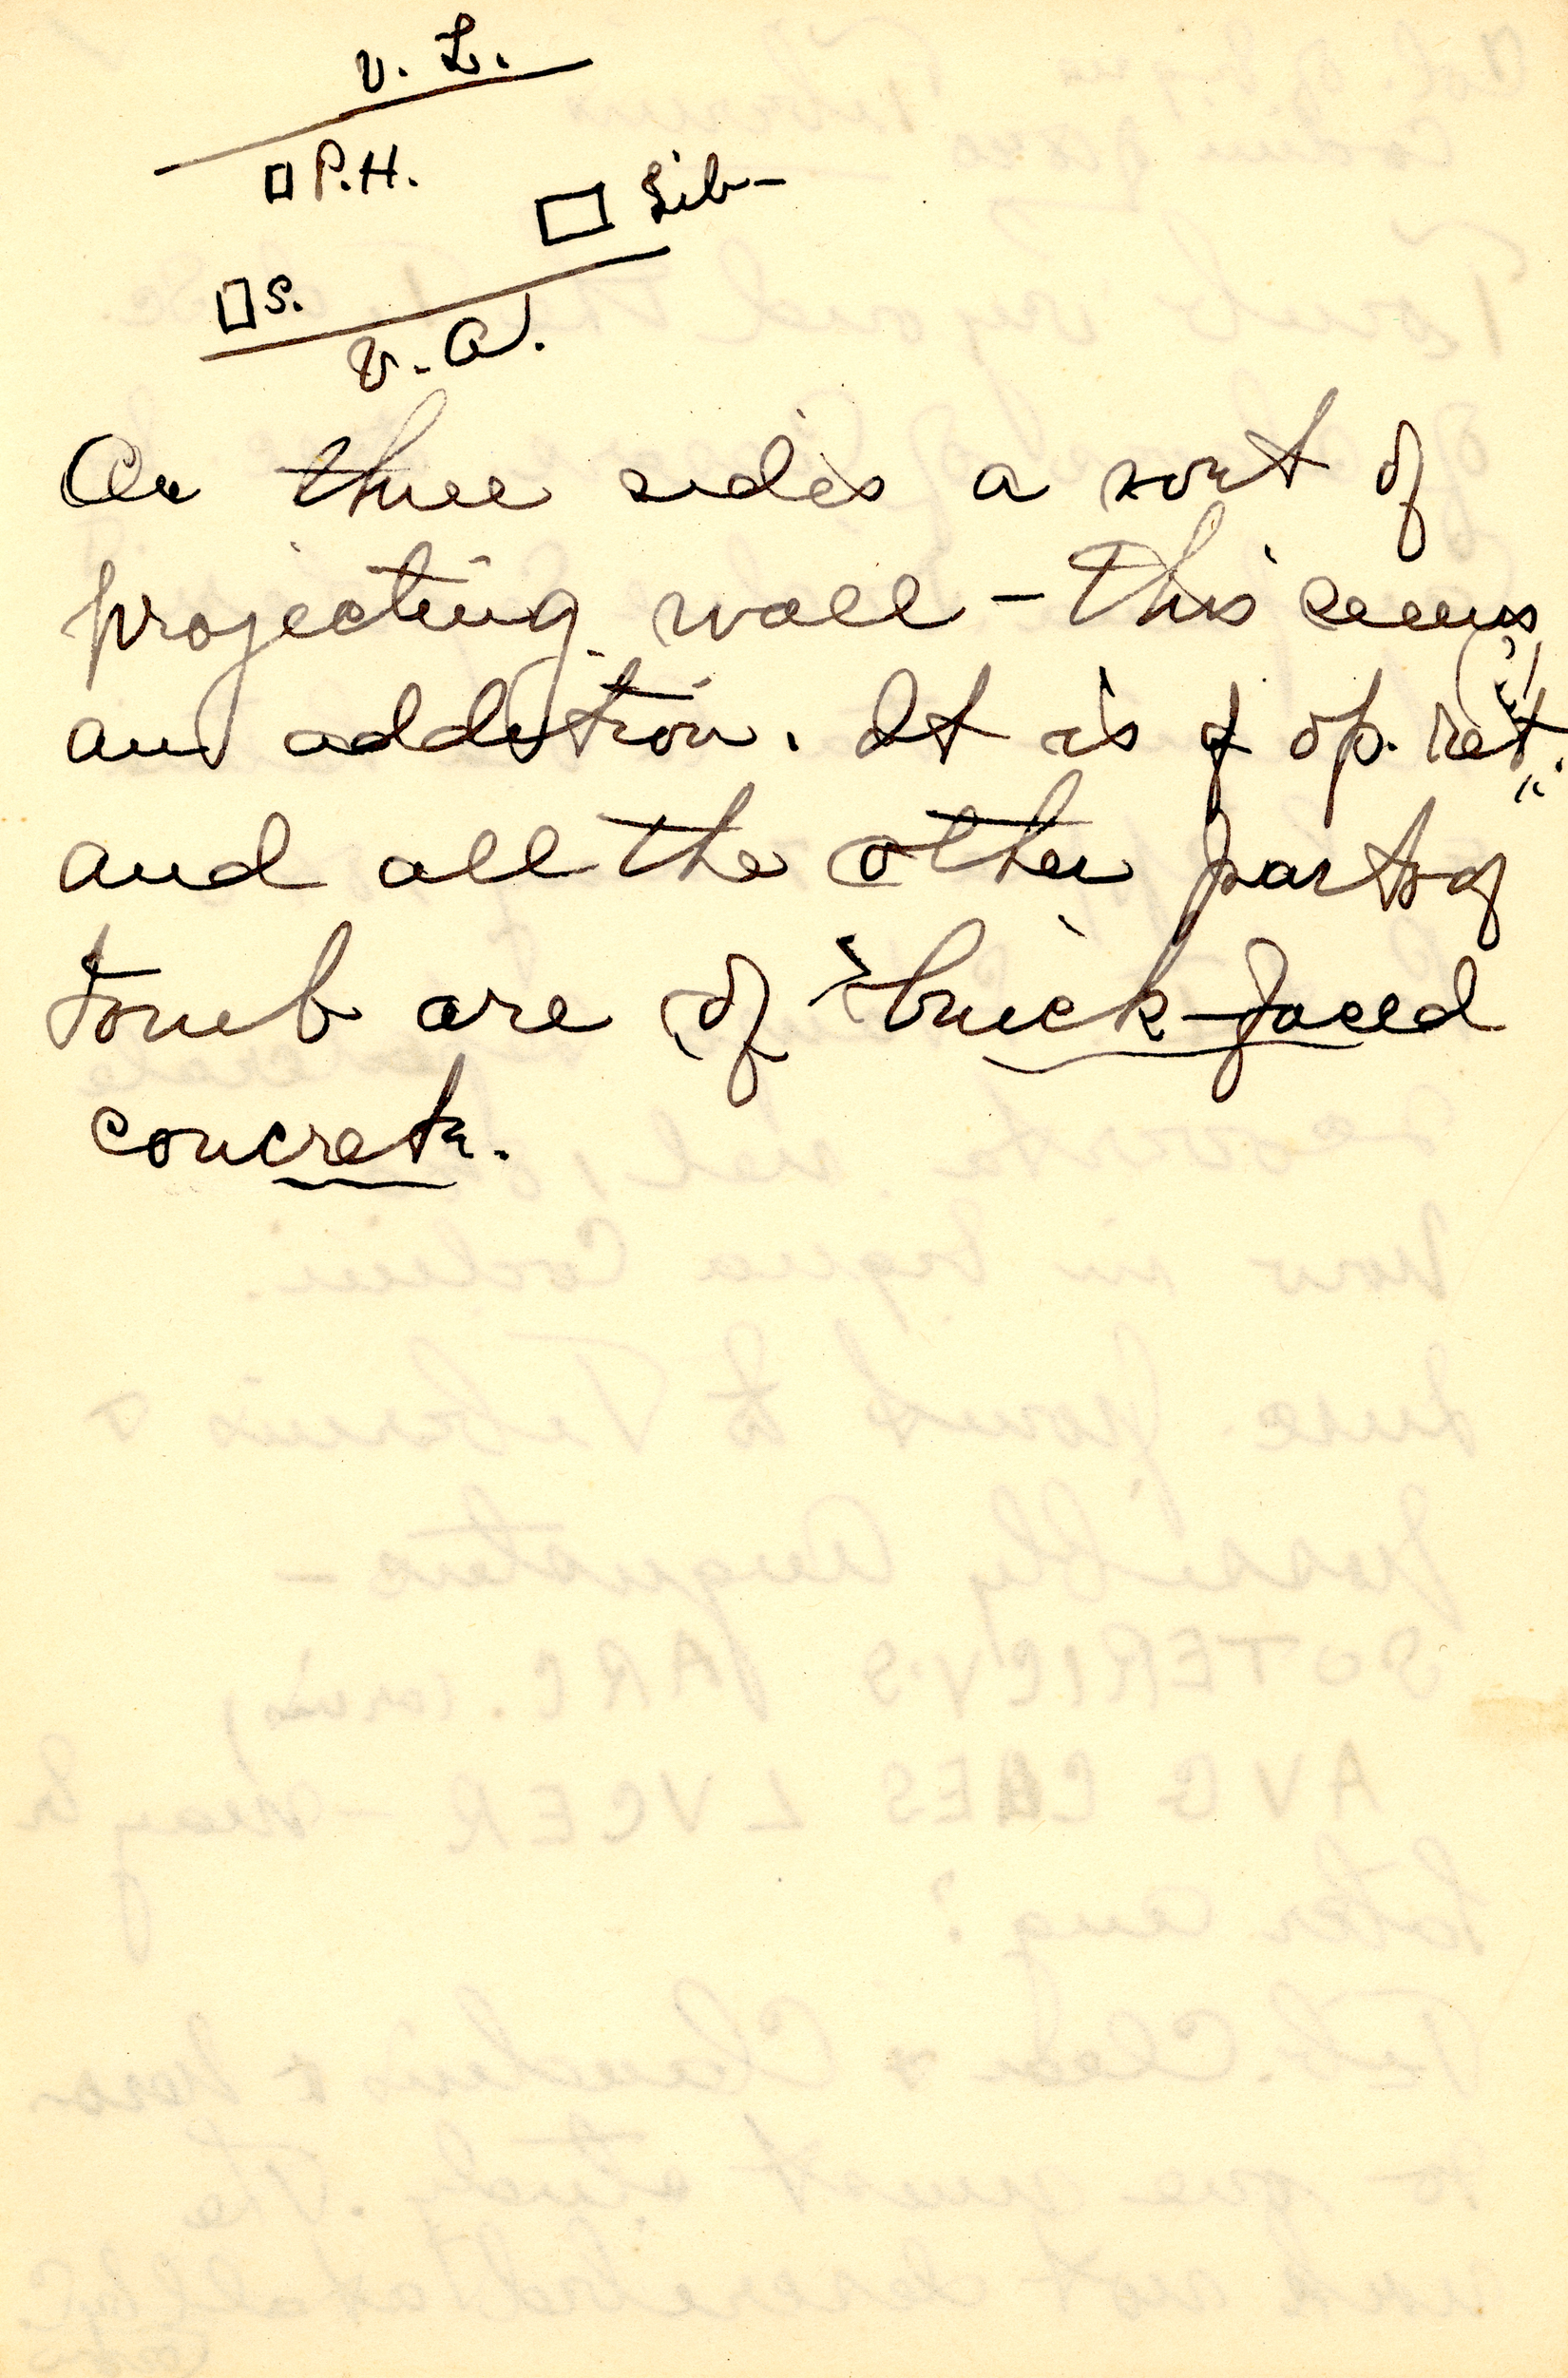 V. L.
P.H.
Lib-
S.
V. A.
On three sides a sort of
projecting wall - this seems
an addition. It is of op. ret.
and all the other parts of
tomb are of brick-faced
concrete.